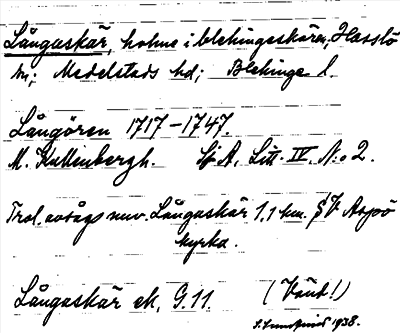 Långaskär, holme i blekingeskären, Hasslö
sn; Medelstads hd; Blekinge l.
Långören 1717-1747.
M. Kullenbergh. SjA, Litt. IV, N:o 2.
Trol. avses nuv. Långaskär 1,1 km. SV Aspö
kyrka.
Långaskär ek, G. 11. (Vänd!)
1938.